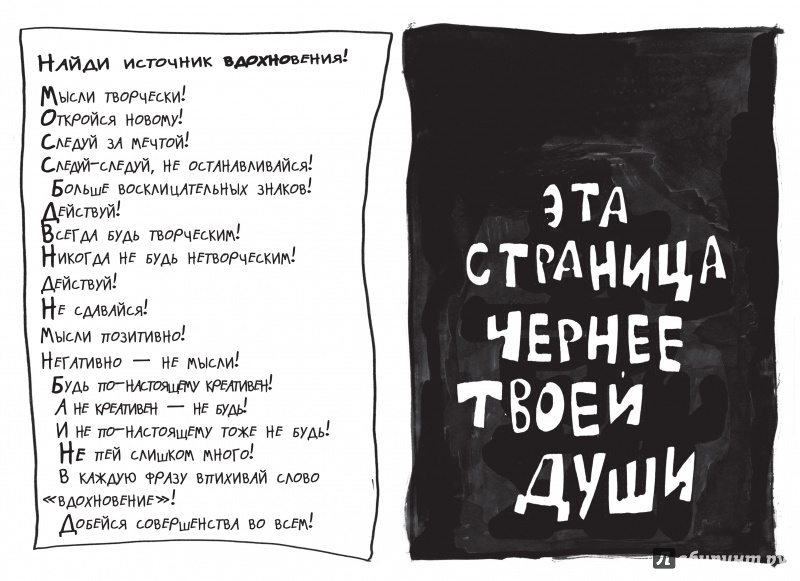 Найди источник вдохновения!
Мысли творчески!
Откройся новому!
Следуй за мечтой!
Следуй-следуй, не останавливайся!
Больше восклицательных знаков!
Действуй!
Всегда будь творческим!
Никогда не будь нетворческим!
Действуй!
Не сдавайся!
Мысли позитивно!
Негативно — не мысли!
Будь по-настоящему креативен!
А не креативен — не будь!
И не по-настоящему тоже не будь!
Не пей слишком много!
В каждую фразу впихивай слово
«вдохновение»!
Добейся совершенства во всем!
ЭТА
СТРАНИЦА
ЧЕРНЕЕ
ТВОЕЙ
ДУШИ
Лабиринт.ру